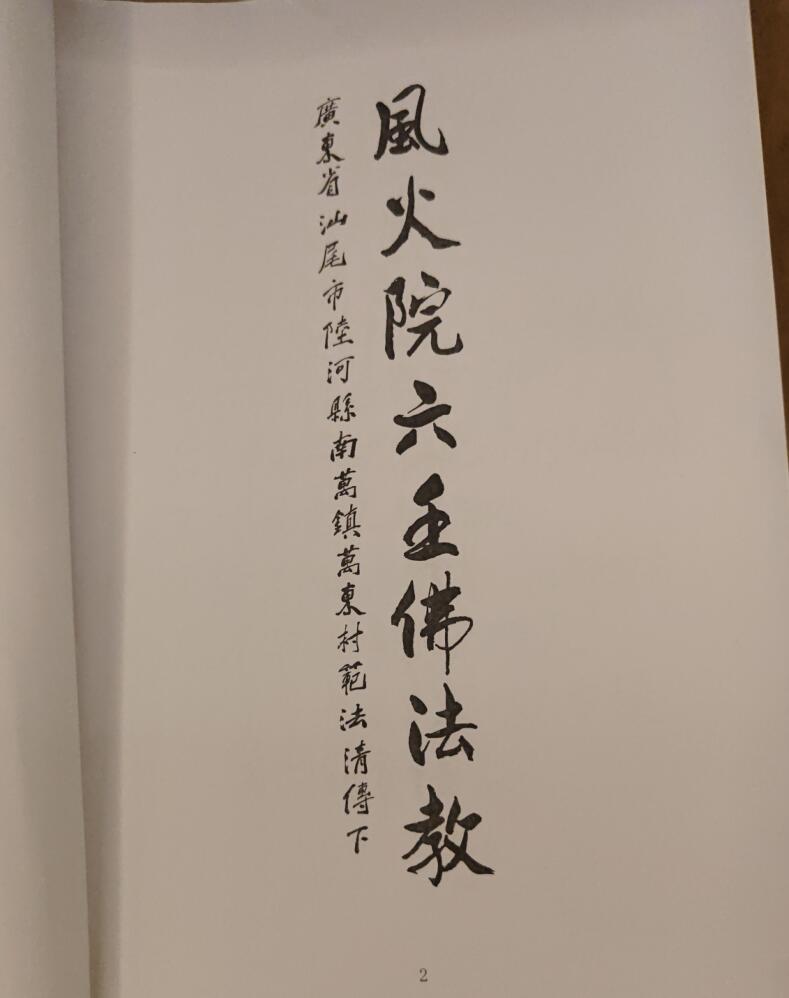 風火院六壬佛法教
廣東省汕尾市陸河縣南萬鎮萬東村範法清傳下
2